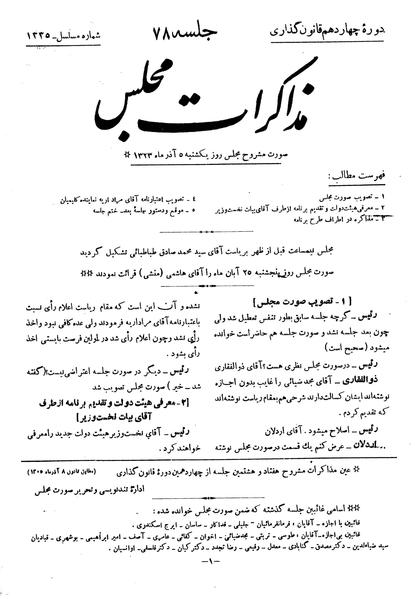 دورهٔ چهاردهم قانون گذاری
جلسه ۷۸
شماره مسلسل - ۱۲۳۵
مذاکرات مجلس
صورت مشروح مجلس روز یکشنبه ۵ آذر ماه ۱۳۲۳
فهرست مطالب:
۱ - تصویب صورت مجلس
۲ - معرفی هیئت دولت و تقدیم برنامه از طرف آقای بیات نخست‌وزیر
۳ - مذاکره در اطراف طرح برنامه
۴ - تصویب اعتبارنامه آقای مراد اریه نماینده کلیمیان
۵ - موقع و دستور جلسهٔ بعد ختم جلسه
مجلس نیمساعت قبل از ظهر بریاست آقای سید محمد صادق طباطبائی تشکیل گردید
صورت مجلس روز پنجشنبه ۲۵ آبان ماه را آقای هاشمی (منشی) قرائت نمودند
[۱ - تصویب صورت مجلس]
رئیس - گرچه جلسه سابق بطور تنفس تعطیل شد ولی
چون بعد جلسه نشد و صورت جلسه هم حاضر است خوانده
میشود (صحیح است)
رئیس - در صورت مجلس نظری هست؟ آقای ذوالفقاری
ذوالفقاری - آقای مجد ضیائی را غایب بدون اجازه
نوشته‌اند ایشان کسالت دارند شرحی هم بمقام ریاست نوشته‌اند
که تقدیم کردم.
رئیس - اصلاح میشود. آقای اردلان
اردلان - عرض کنم یك قسمت در صورت مجلس نوشته
نشده و آن این است که مقام ریاست اعلام رأی نسبت
باعتبارنامهٔ آقای مراد اریه فرمودند ولی عده کافی نبود و اخذ
رأی نشد و چون اعلام رأی شد در اولین فرصت بایستی اخذ
رأی بشود.
رئیس - دیگر در صورت جلسه اعتراضی نیست؟ (گفته
شد - خیر) صورت مجلس تصویب شد
[۲ - معرفی هیئت دولت و تقدیم برنامه از طرف
آقای بیات نخست وزیر]
رئیس - آقای نخست وزیر هیئت دولت جدید را معرفی
خواهند کرد.
عین مذاکرات مشروح هفتاد و هشتمین جلسه از چهاردهمین دورهٔ قانون گذاری
(مطابق قانون ۸ آذر ماه ۱۳۰۵)
ادارهٔ تندنویسی و تحریر صورت مجلس
اسامی غائبین جلسه گذشته که ضمن صورت مجلس خوانده شده:
غائبین با اجازه - آقایان: فرمانفرمائیان - جلیلی - فداکار - ساسان - ایرج اسکندری
غائبین بی‌اجازه - آقایان: طوسی - تربتی - مجد ضیائی - اخوان - کفائی - عامری - آصف - امیر ابراهیمی - بوشهری - قبادیان
سید ضیاءالدین - دکتر مصدق - گنابادی - معدل - رفیعی - رضا تجدد - دکتر کیان - دکتر فلسفی - اوانسیان.
-۱-